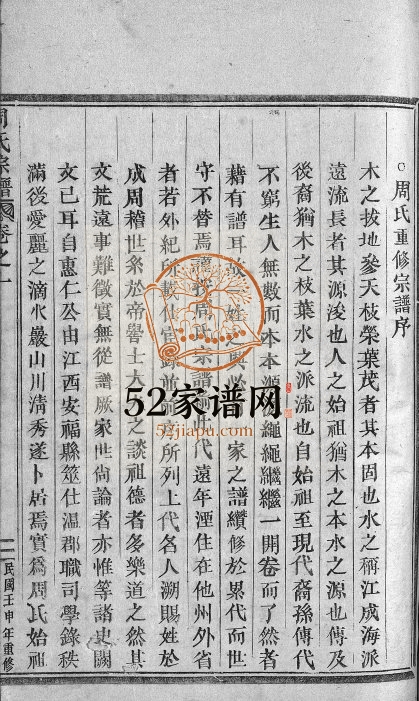 周氏重修宗譜序
木之拔地參天枝榮葉茂者其本固也水之稱江成海派
遠流長者其源浚也人之始祖猶木之本水之源也傳及
後裔猶木之枝葉水之派流也自始祖至現代裔孫傳代
不窮生人無數而本本源繩繩繼繼一開卷而了然者
藉有譜耳故姓與家之譜纘修於累代而世
守不替焉周氏宗譜代遠年湮住在他州外省
者若外紀所載仕宦錄前所列上代名人溯賜姓於
成周稽世系於帝嚳士大之談祖德者多樂道之然其
文荒遠事難徵實無從譜厥家世尚論者亦惟等諸史闕
文已耳自惠仁公由江西安福縣筮仕溫郡職司學錄秩
滿後愛麗之滴水巖山川清秀遂卜居焉實為周氏始祖
周氏宗譜
卷之一
一
民國壬申年重修
52家谱网
52jiapu.com